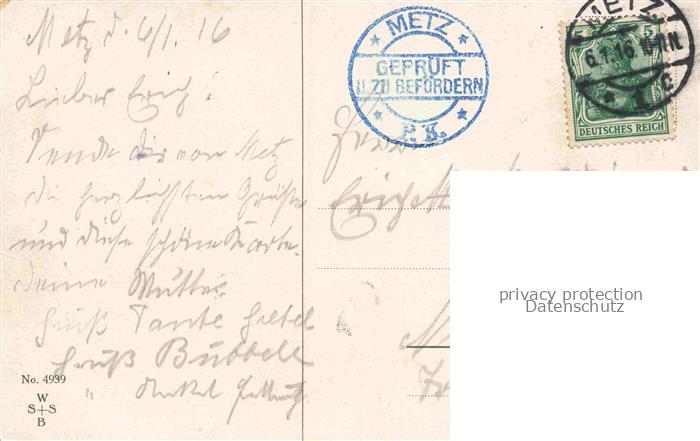 Metz d. 6/1. 16
Lieber Erich!
Sende dir von Metz
die herzlichsten Grüße
und diese schöne Karte.
deine Mutter
Gruß Tante Gretel
Gruß Bubbele
" Onkel
No. 4939
W
S+S
B
METZ
GEPRÜFT
U. ZU BEFÖRDERN
P. K.
METZ
6.1.16
1 c
DEUTSCHES REICH
Herrn
Erich
privacy protection
Datenschutz